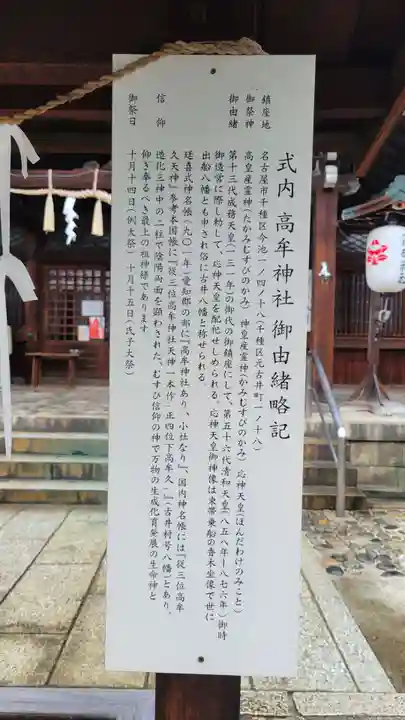 式内 高牟神社 御由緒略記
鎮座地 名古屋市千種区今池一ノ四ノ十八(千種区元古井町一ノ十八)
御祭神 高皇産霊神(たかみむすびのかみ) 神皇産霊神(かみむすびのかみ) 応神天皇(ほんだわけのみこと)
御由緒 第十三代成務天皇(一三一年)の御代の御鎮座にして、第五十六代清和天皇(八五八年ー八七六年)御時
御造営に際し勅して、応神天皇を配祀せしめられる。応神天皇御神像は束帯乗船の香木坐像で世に
出船八幡とも申され俗に古井八幡と称せられる。
延喜式神名帳(九〇一年)愛知郡の部に『高牟神社あり、小社なり』、国内神名帳には『従三位高牟
久天神』参考本国帳に『従三位高牟神社天神一本作 正四位下高牟久』『(古井村号八幡)とあり。
信仰 造化三神中の二柱で陰陽両面を顕わされた、むすび信仰の神で万物の生成化育発展の生命神と
仰ぎ奉るべき最上の祖神様であります
御祭日 十月十四日(例大祭) 十月十五日(氏子大祭)